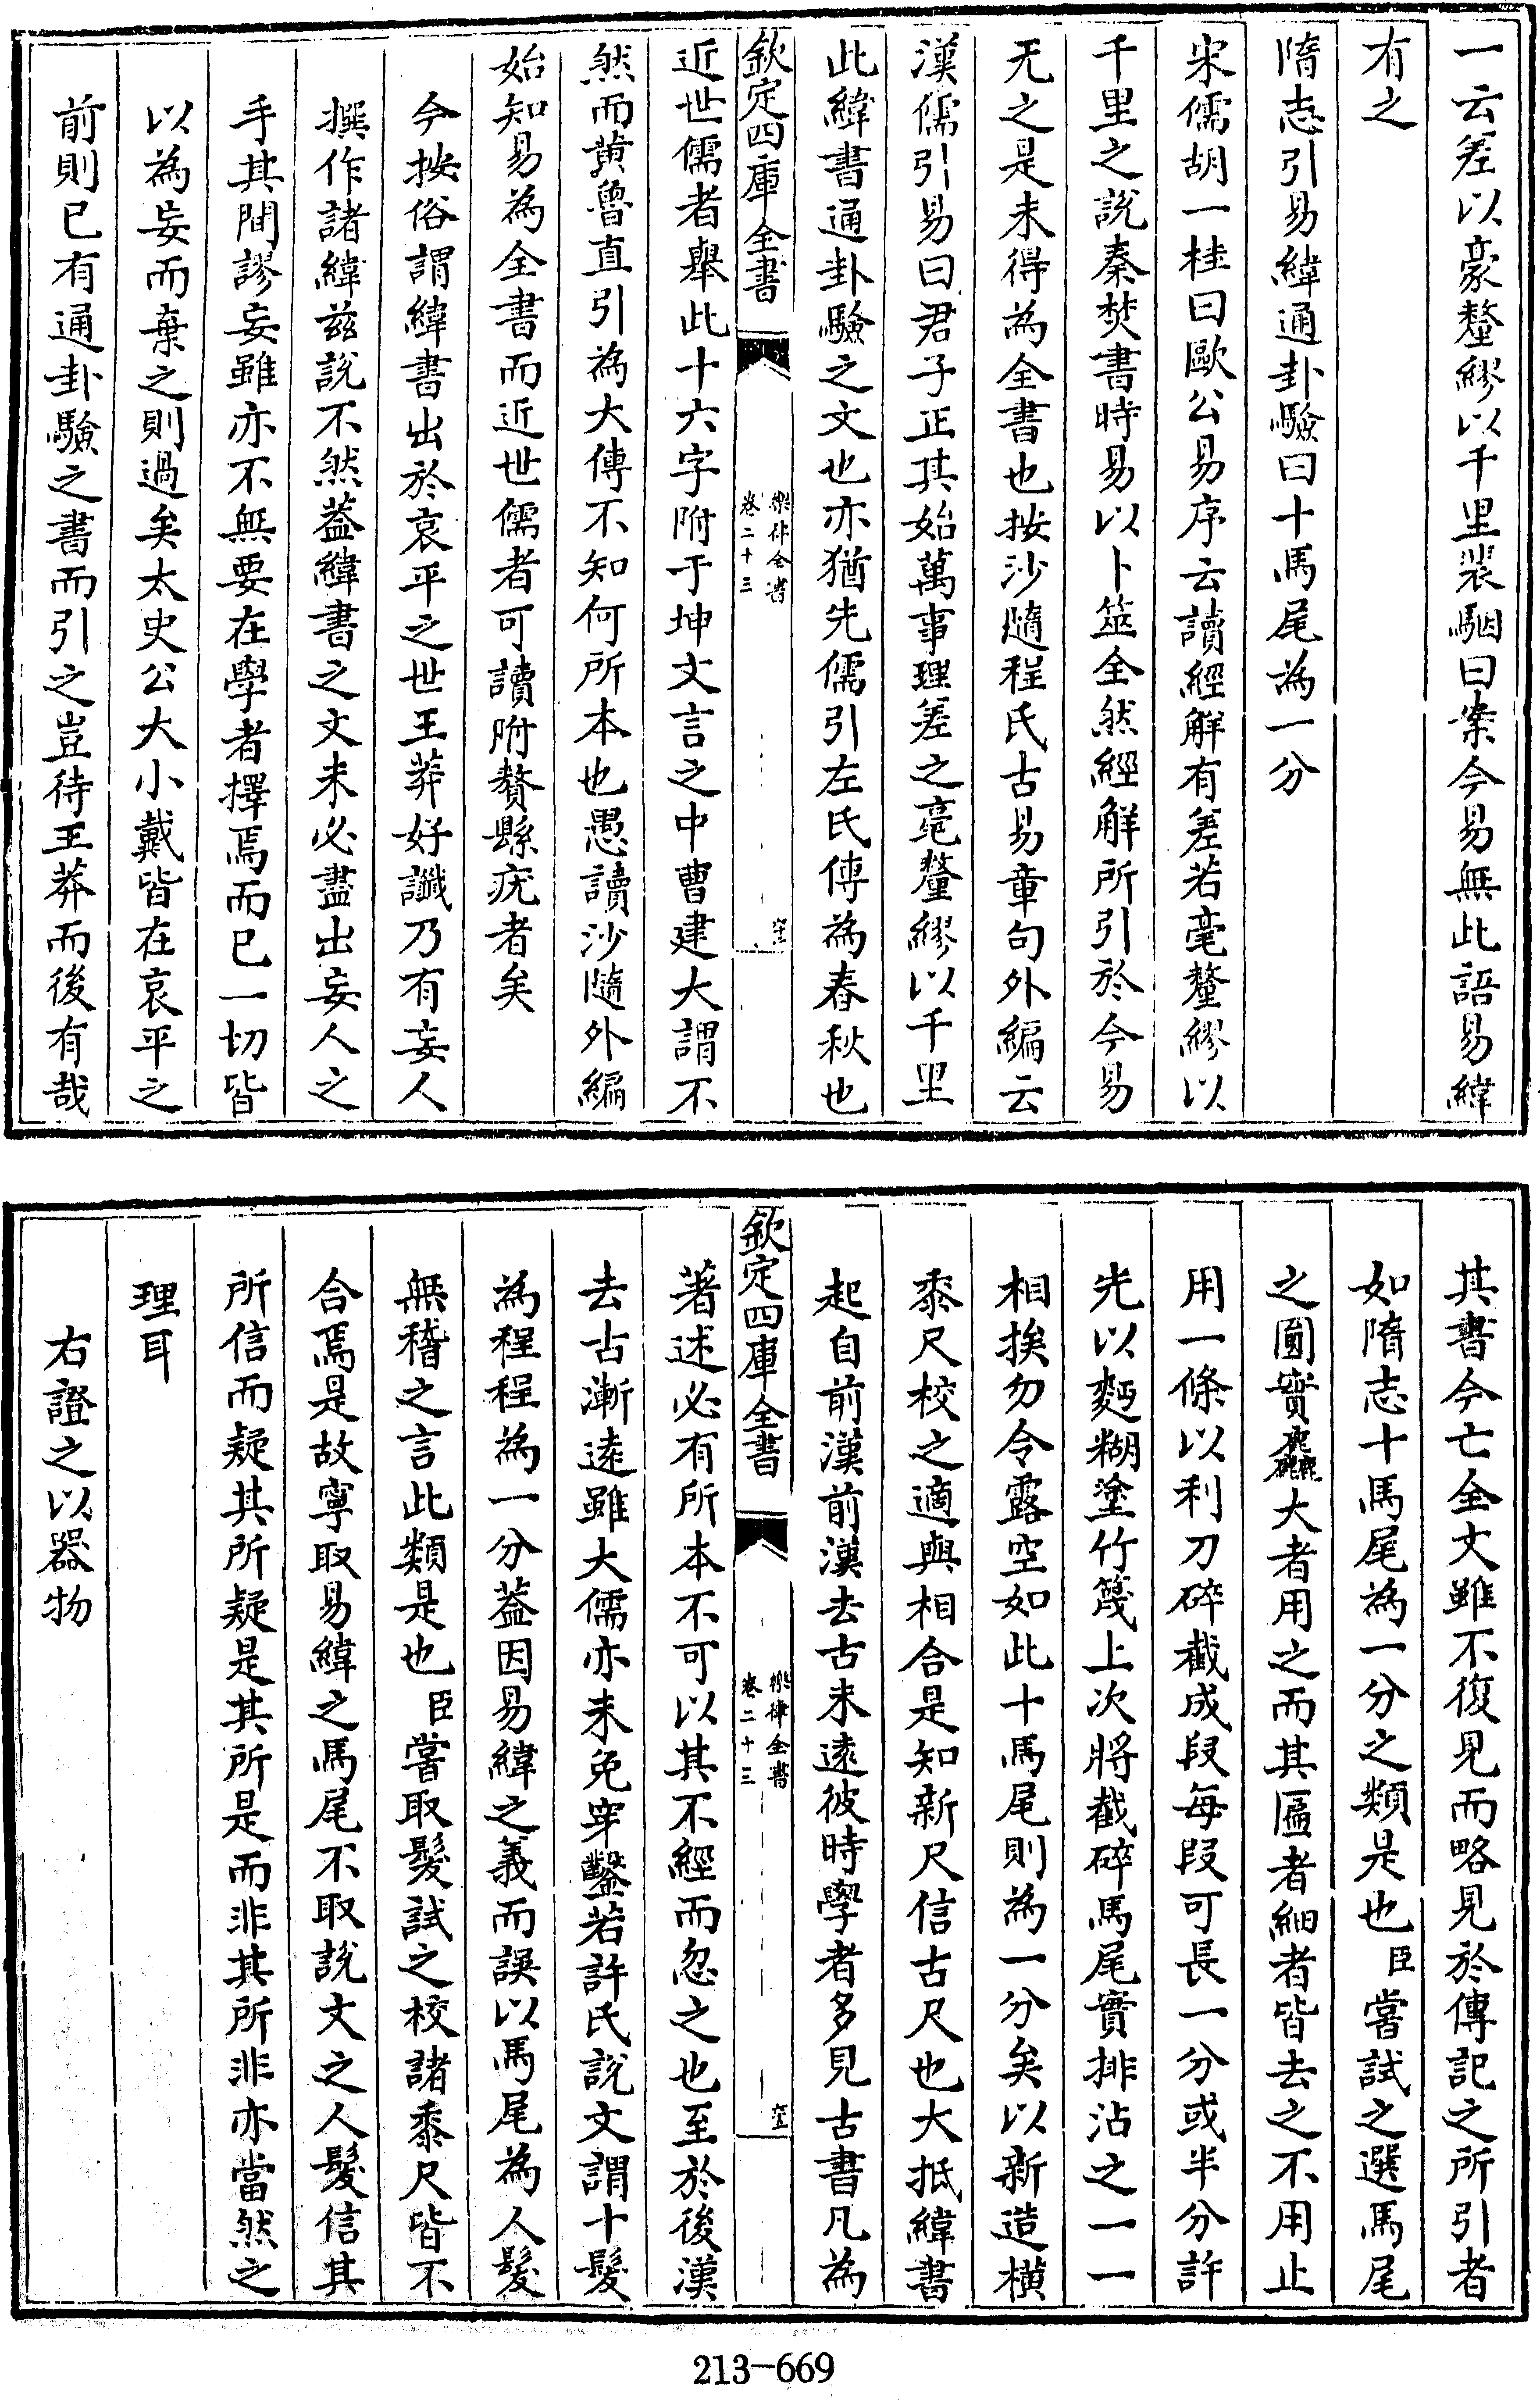 一云差以豪釐繆以千里裴駰曰案今易無此語易緯
有之
隋志引易緯通卦驗曰十馬尾為一分
宋儒胡一桂曰歐公易序云讀經解有差若毫釐繆以
千里之說秦焚書時易以卜筮全然經解所引於今易
无之是未得為全書也按沙隨程氏古易章句外編云
漢儒引易曰君子正其始萬事理差之毫釐繆以千里
此緯書通卦驗之文也亦猶先儒引左氏傳為春秋也
欽定四庫全書
樂律全書
卷二十三
近世儒者舉此十六字附于坤文言之中曹建大謂不
然而黃魯直引為大傳不知何所本也愚讀沙隨外編
始知易為全書而近世儒者可讀附贅縣疣者矣
今按俗謂緯書出於哀平之世王莽好讖乃有妄人
撰作諸緯兹說不然葢緯書之文未必盡出妄人之
手其間謬妄雖亦不無要在學者擇焉而已一切皆
以為妄而棄之則過矣太史公大小戴皆在哀平之
前則已有通卦驗之書而引之豈待王莽而後有哉
其書今亡全文雖不復見而略見於傳記之所引者
如隋志十馬尾為一分之類是也臣嘗試之選馬尾
之圓實麤大者用之而其匾者細者皆去之不用止
用一條以利刀碎截成段每段可長一分或半分許
先以麪糊塗竹篾上次將截碎馬尾實排沾之一一
相挨勿令露空如此十馬尾則為一分矣以新造橫
黍尺校之適與相合是知新尺信古尺也大抵緯書
起自前漢前漢去古未遠彼時學者多見古書凡為
欽定四庫全書
樂律全書
卷二十三
著述必有所本不可以其不經而忽之也至於後漢
去古漸遠雖大儒亦未免穿鑿若許氏說文謂十髮
為程程為一分葢因易緯之義而誤以馬尾為人髮
無稽之言此類是也臣嘗取髮試之校諸黍尺皆不
合焉是故寧取易緯之馬尾不取說文之人髮信其
所信而疑其所疑是其所是而非其所非亦當然之
理耳
右證之以器物
213-669